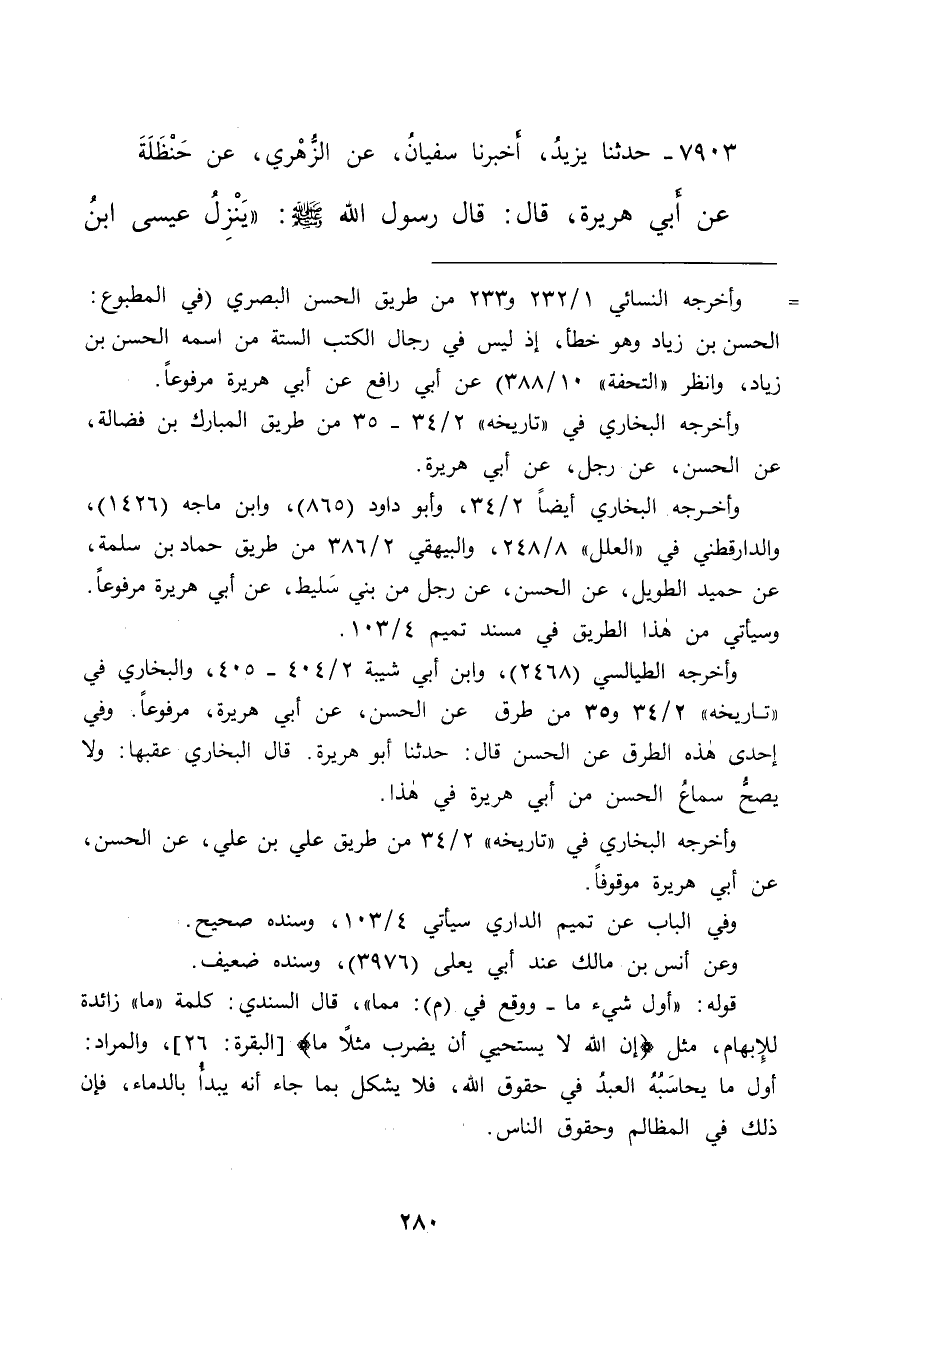 ٧٩٠٣ - حدثنا يزيدُ، أَخبرنا سفيانُ، عن الزُّهْري، عن حَنْظَلَةَ
عن أَبي هريرة، قال: قال رسول الله ﷺ: «يَنْزِلُ عيسى ابنُ
= وأخرجه النسائي ٢٣٢/١ و٢٣٣ من طريق الحسن البصري (في المطبوع:
الحسن بن زياد وهو خطأ، إذ ليس في رجال الكتب الستة من اسمه الحسن بن
زياد، وانظر «التحفة» ٣٨٨/١٠) عن أبي رافع عن أبي هريرة مرفوعاً.
وأخرجه البخاري في «تاريخه» ٣٤/٢ - ٣٥ من طريق المبارك بن فضالة،
عن الحسن، عن رجل، عن أبي هريرة.
وأخرجه البخاري أيضاً ٣٤/٢، وأبو داود (٨٦٥)، وابن ماجه (١٤٢٦)،
والدارقطني في «العلل» ٢٤٨/٨، والبيهقي ٣٨٦/٢ من طريق حماد بن سلمة،
عن حميد الطويل، عن الحسن، عن رجل من بني سَليط، عن أبي هريرة مرفوعاً.
وسيأتي من هٰذا الطريق في مسند تميم ١٠٣/٤.
وأخرجه الطيالسي (٢٤٦٨)، وابن أبي شيبة ٤٠٤/٢ - ٤٠٥، والبخاري في
«تاريخه» ٣٤/٢ و٣٥ من طرق عن الحسن، عن أبي هريرة، مرفوعاً. وفي
إحدى هٰذه الطرق عن الحسن قال: حدثنا أبو هريرة. قال البخاري عقبها: ولا
يصحُّ سماعُ الحسن من أبي هريرة في هٰذا.
وأخرجه البخاري في «تاريخه» ٣٤/٢ من طريق علي بن علي، عن الحسن،
عن أبي هريرة موقوفاً.
وفي الباب عن تميم الداري سيأتي ١٠٣/٤، وسنده صحيح.
وعن أنس بن مالك عند أبي يعلى (٣٩٧٦)، وسنده ضعيف.
قوله: «أول شيء ما - ووقع في (م): مما»، قال السندي: كلمة «ما» زائدة
للإِبهام، مثل ﴿إن الله لا يستحيي أن يضرب مثلاً ما﴾ [البقرة: ٢٦]، والمراد:
أول ما يحاسَبُهُ العبدُ في حقوق الله، فلا يشكل بما جاء أنه يبدأُ بالدماء، فإن
ذلك في المظالم وحقوق الناس.
٢٨٠